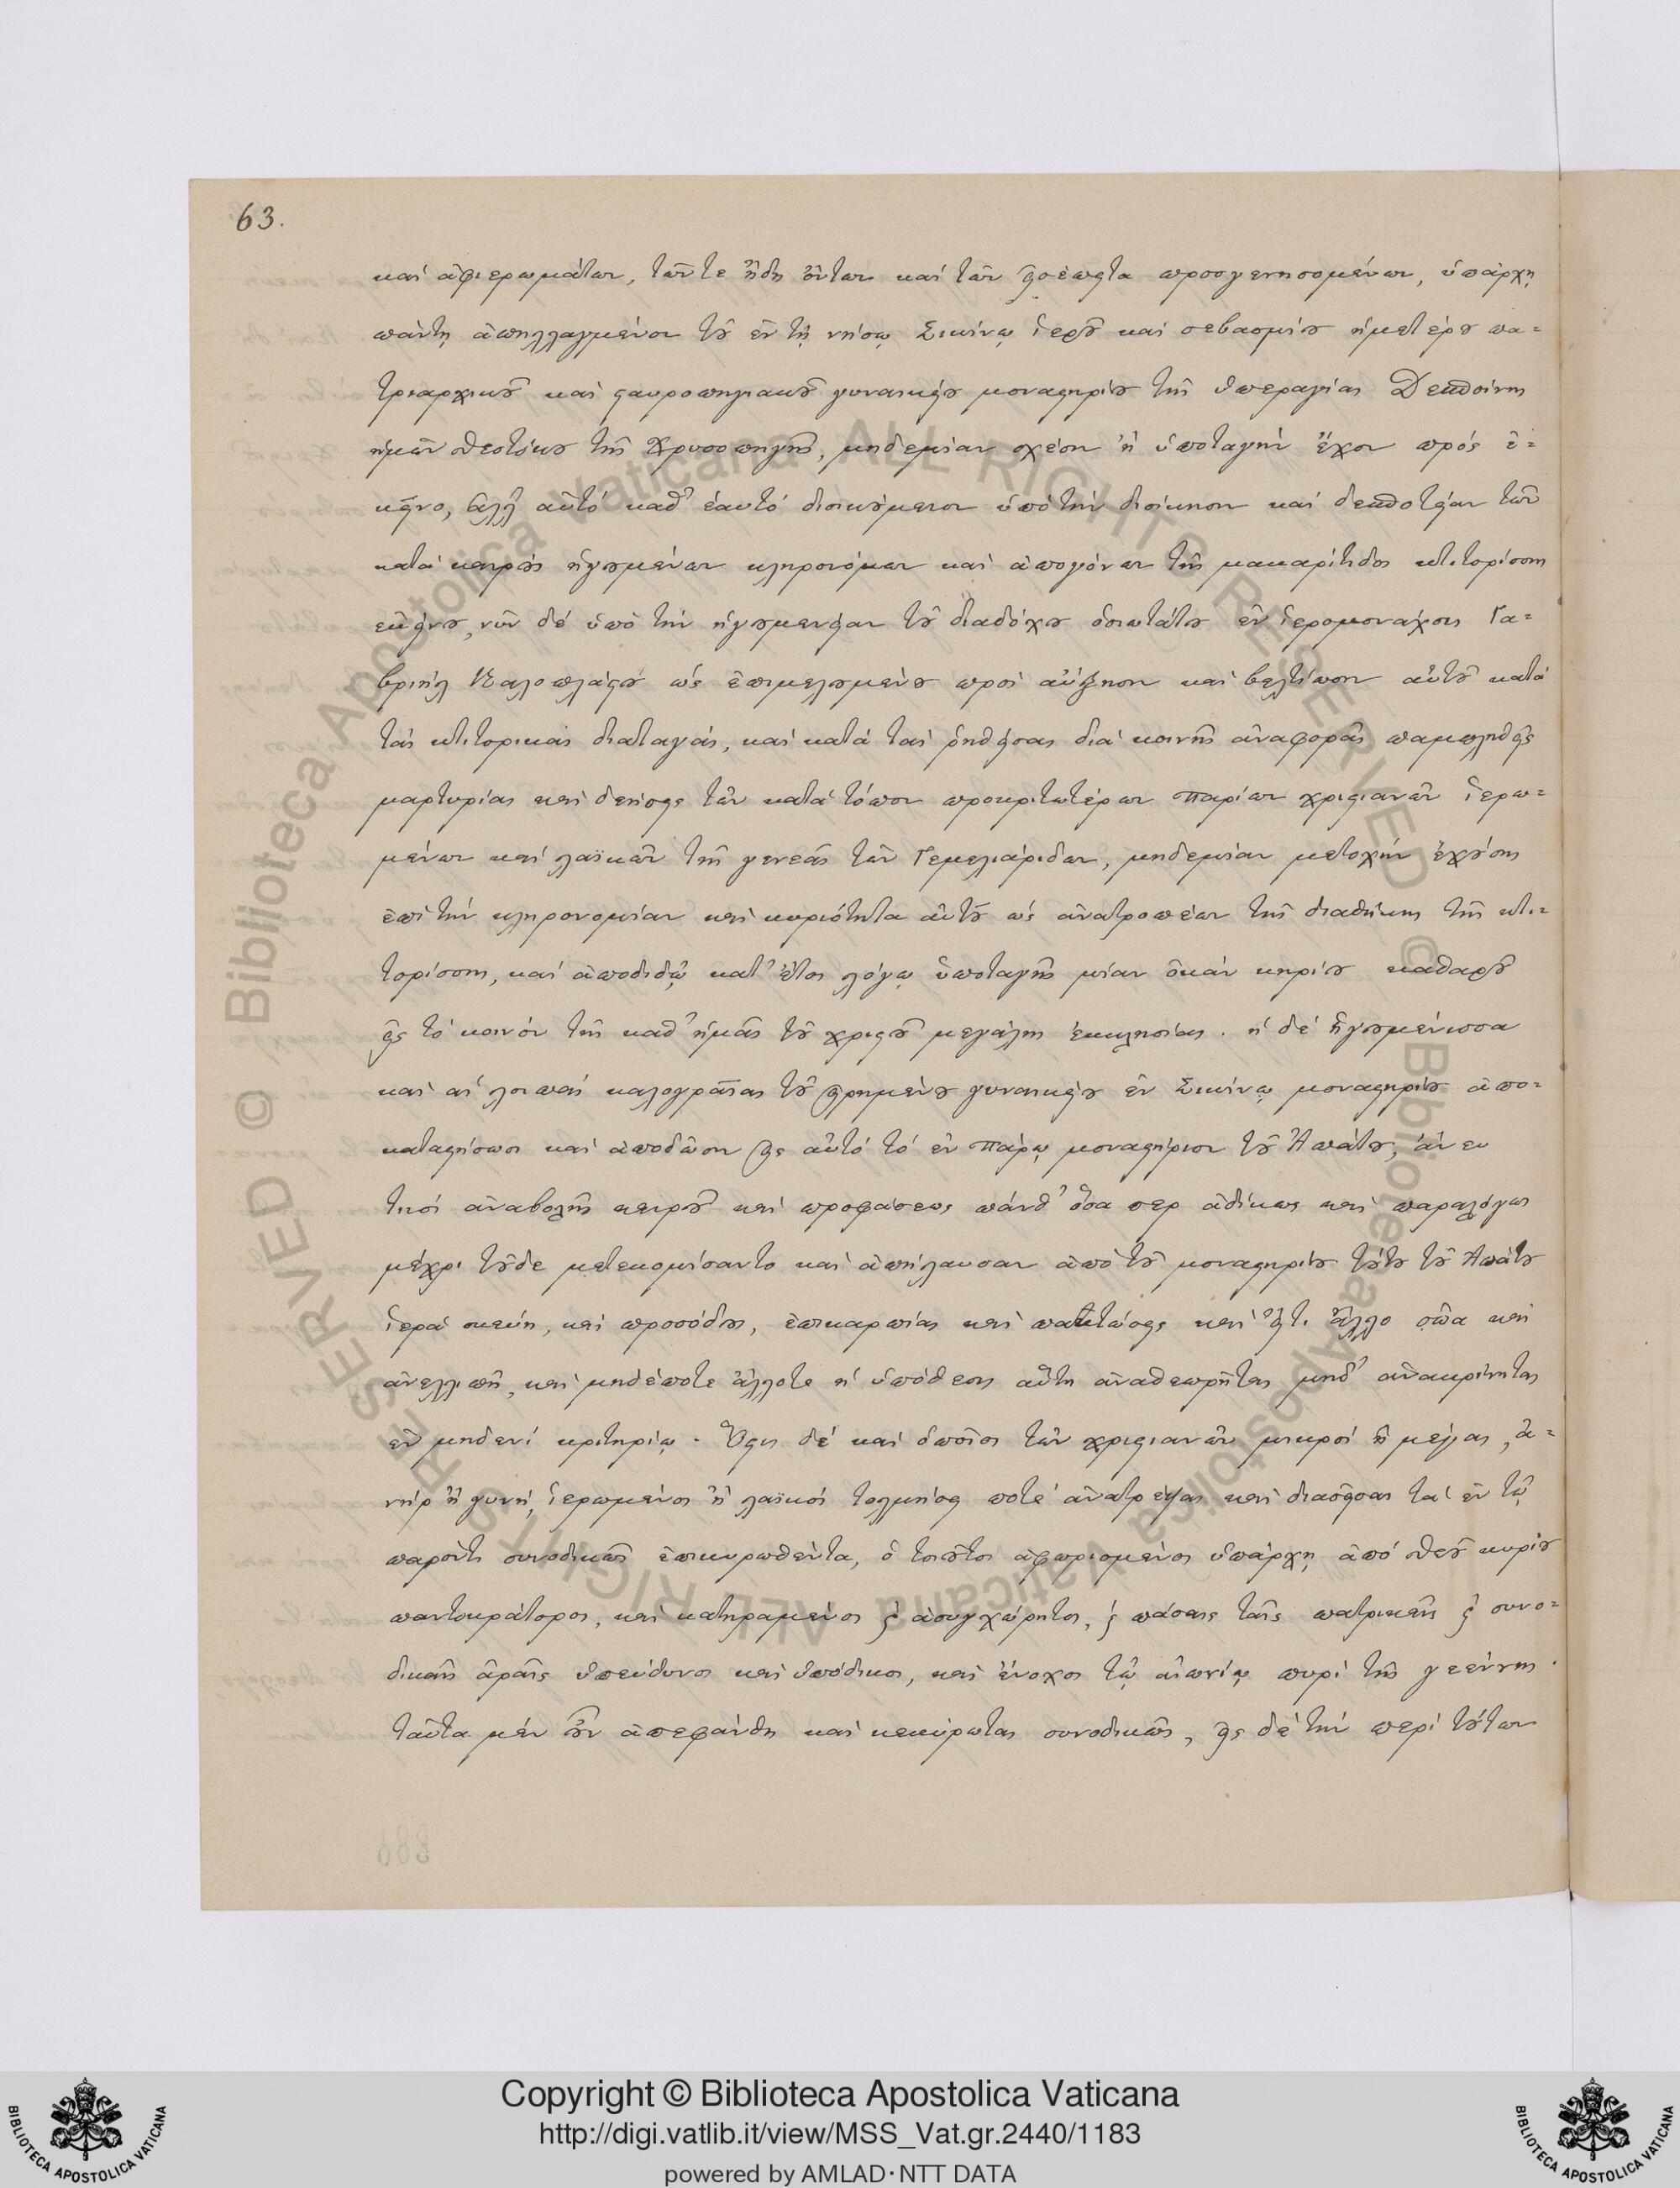 63.
καὶ ἀφιερωμάτων, τῶν τε ἤδη ὄντων καὶ τῶν εἰσέπειτα προσγενησομένων, ὑπάρχῃ
πάντῃ ἀπηλλαγμένον τοῦ ἐν τῇ νήσῳ Σικίνῳ ἱεροῦ καὶ σεβασμίου ἡμετέρου πα-
τριαρχικοῦ καὶ σταυροπηγιακοῦ γυναικείου μοναστηρίου τῆς ὑπεραγίας Δεσποίνης
ἡμῶν θεοτόκου τῆς Χρυσοπηγῆς, μηδεμίαν σχέσιν ἢ ὑποταγὴν ἔχον πρὸς ἐ-
κεῖνο, ἀλλ' αὐτὸ καθ' ἑαυτὸ διοικούμενον ὑπὸ τὴν διοίκησιν καὶ δεσποτείαν τῶν
κατὰ καιροὺς ἡγουμένων κληρονόμων καὶ ἀπογόνων τῆς μακαρίτιδος κτιτορίσσης
ἐκείνου, νῦν δὲ ὑπὸ τὴν ἡγουμενείαν τοῦ διαδόχου ὁσιωτάτου ἐν ἱερομονάχοις Γα-
βριὴλ Καλοπλάστου ὡς ἐπιμελουμένου πρὸς αὔξησιν καὶ βελτίωσιν αὐτοῦ κατὰ
τὰς κτιτορικὰς διαταγάς, καὶ κατὰ τὰς ῥηθείσας διὰ κοινῆς ἀναφορᾶς παμπληθεῖς
μαρτυρίας καὶ δεήσεις τῶν κατὰ τόπον προκριτωτέρων Παρίων χριστιανῶν ἱερω-
μένων καὶ λαϊκῶν τῆς γενεᾶς τῶν Γεμελιάριδων, μηδεμίαν μετοχὴν ἐχούσης
ἐπὶ τὴν κληρονομίαν καὶ κυριότητα αὐτοῦ ὡς ἀνατροπέων τῆς διαθήκης τῆς κτι-
τορίσσης, καὶ ἀποδιδῷ κατ' ἔτος λόγῳ ὑποταγῆς μίαν ὀκὰν κηρίου καθαροῦ
εἰς τὸ κοινὸν τῆς καθ' ἡμᾶς τοῦ χριστοῦ μεγάλης ἐκκλησίας. ἡ δὲ ἡγουμένισσα
καὶ αἱ λοιπαὶ καλογραῖαι τοῦ εἰρημένου γυναικείου ἐν Σικίνῳ μοναστηρίου ἀπο-
καταστήσωσι καὶ ἀποδῶσιν εἰς αὐτὸ τὸ ἐν Πάρῳ μοναστήριον τοῦ Ἀπάτου, ἄνευ
τινὸς ἀναβολῆς καιροῦ καὶ προφάσεως πάνθ' ὅσα περ ἀδίκως καὶ παραλόγως
μέχρι τοῦδε μετεκομίσαντο καὶ ἀπήλαυσαν ἀπὸ τοῦ μοναστηρίου τούτου τοῦ Ἀπάτου
ἱερὰ σκεύη, καὶ προσόδους, ἐπικαρπίας καὶ πακτώσεις καὶ εἴ τι ἄλλο σῶα καὶ
ἀνελλιπῆ, καὶ μηδέποτε ἄλλοτε ἡ ὑπόθεσις αὕτη ἀναθεωρῆται μηδ' ἀνακρίνηται
ἐν μηδενὶ κριτηρίῳ. Ὅστις δὲ καὶ ὁποῖος τῶν χριστιανῶν μικρὸς ἢ μέγας, ἀ-
νὴρ ἢ γυνή, ἱερωμένος ἢ λαϊκὸς τολμήσει ποτὲ ἀνατρέψαι καὶ διασεῖσαι τὰ ἐν τῷ
παρόντι συνοδικῶς ἐπικυρωθέντα, ὁ τοιοῦτος ἀφωρισμένος ὑπάρχῃ ἀπὸ θεοῦ κυρίου
παντοκράτορος, καὶ κατηραμένος ϗ ἀσυγχώρητος, ϗ πάσαις ταῖς πατρικαῖς ϗ συνο-
δικαῖς ἀραῖς ὑπεύθυνος καὶ ὑπόδικος, καὶ ἔνοχος τῷ αἰωνίῳ πυρὶ τῆς γεέννης.
ταῦτα μὲν οὖν ἀπεφάνθη καὶ κεκύρωται συνοδικῶς, εἰς δὲ τὴν περὶ τούτων
Copyright © Biblioteca Apostolica Vaticana
http://digi.vatlib.it/view/MSS_Vat.gr.2440/1183
powered by AMLAD・NTT DATA
BIBLIOTECA APOSTOLICA VATICANA
BIBLIOTECA APOSTOLICA VATICANA